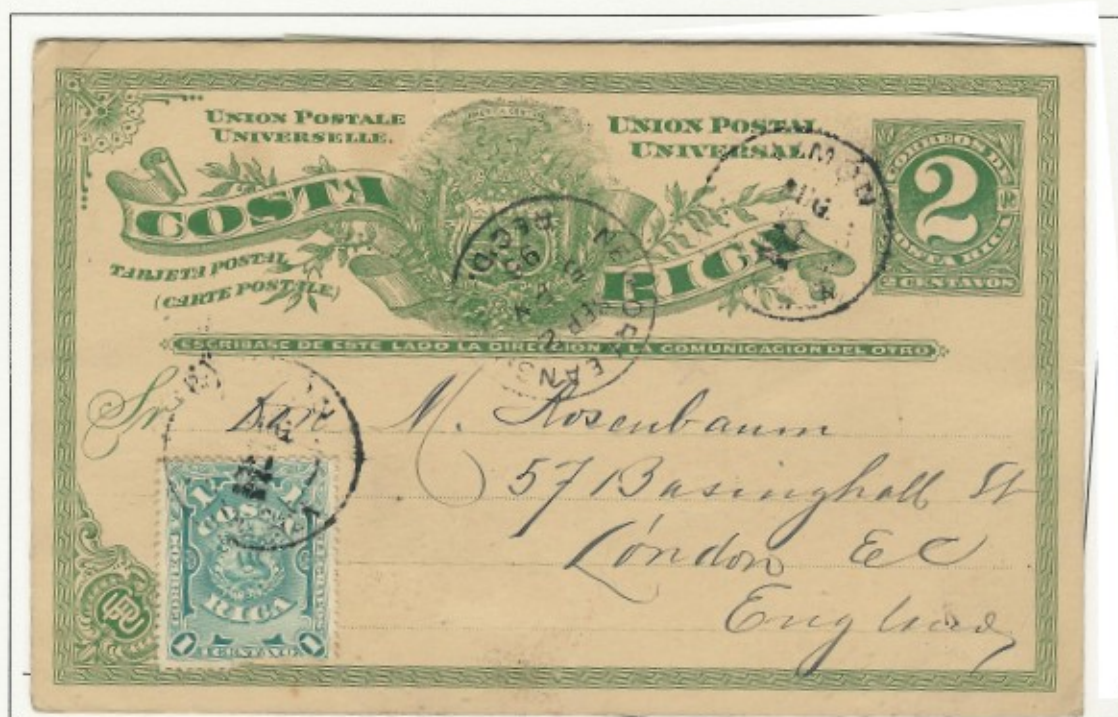 UNION POSTALE
UNIVERSELLE.
UNION POSTAL
UNIVERSAL
COSTA
RICA
TARJETA POSTAL
(CARTE POSTALE)
CORREOS DE
2
COSTA RICA
2 CENTAVOS
ESCRIBASE DE ESTE LADO LA DIRECCION Y LA COMUNICACION DEL OTRO
RECD.
Sr. Don M. Rosenbaum
57 Basinghall St
London EC
England
1 1
COSTA
RICA
1 1
CENTAVO